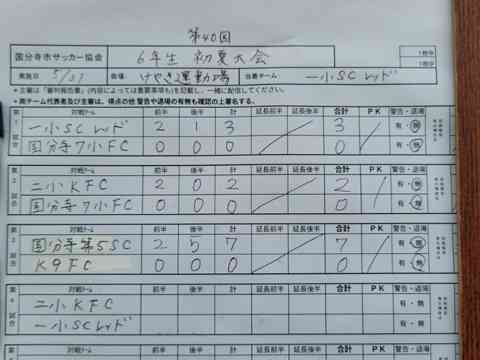 第40回
国分寺市サッカー協会 6年生 初夏大会
実施日 5/27 会場 けやき運動場 当番チーム 一小SCレッド
*主審は「審判報告書」(内容によっては重要事項も)を記載し、一緒に配信してください。
*両チーム代表者及び主審は、得点の他 警告や退場の有無も確認の上署名する。
第1試合 対戦チーム 前半 後半 計 延長前半 延長後半 合計 PK 警告・退場
一小SCレッド 2 1 3 3 有・無
国分寺7小FC 0 0 0 0 有・無
第2試合 対戦チーム 前半 後半 計 延長前半 延長後半 合計 PK 警告・退場
二小KFC 2 0 2 2 有・無
国分寺7小FC 0 0 0 0 有・無
第3試合 対戦チーム 前半 後半 計 延長前半 延長後半 合計 PK 警告・退場
国分寺第5SC 2 5 7 7 有・無
K9FC 0 0 0 0 有・無
第4試合 対戦チーム 前半 後半 計 延長前半 延長後半 合計 PK 警告・退場
二小KFC 有・無
一小SCレッド 有・無
対戦チーム 前半 後半 計 延長前半 延長後半 合計 PK 警告・退場